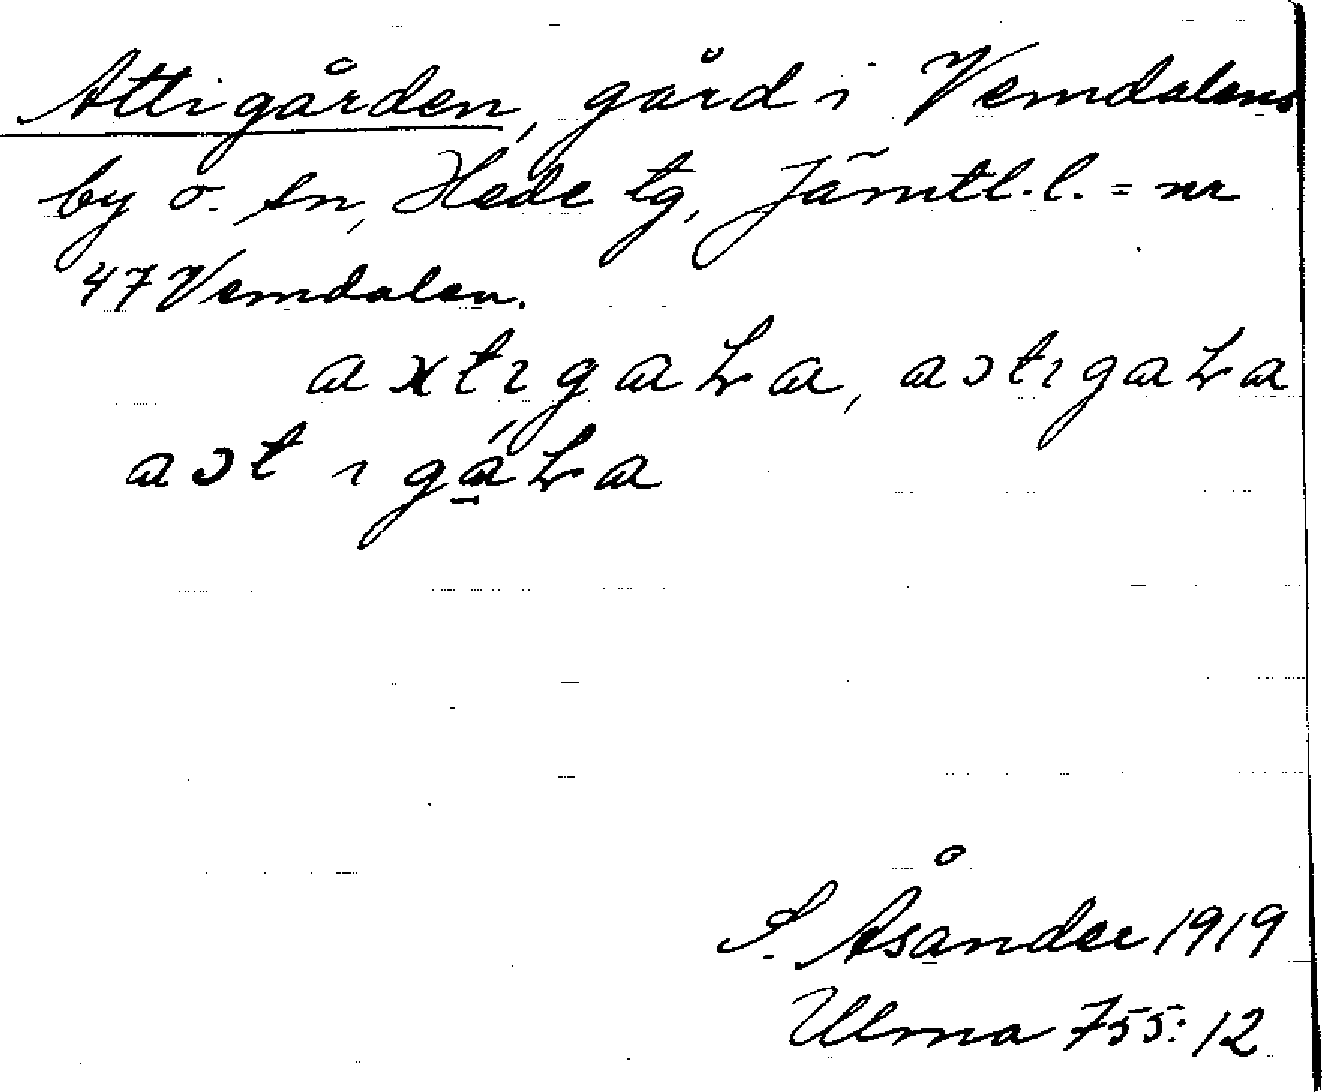 Attigården, gård i Vemdalens
by o. sn, Hede tg, Jämtl. l. = nr
47 Vemdalen.
S. Åsander 1919
Ulma 755:12